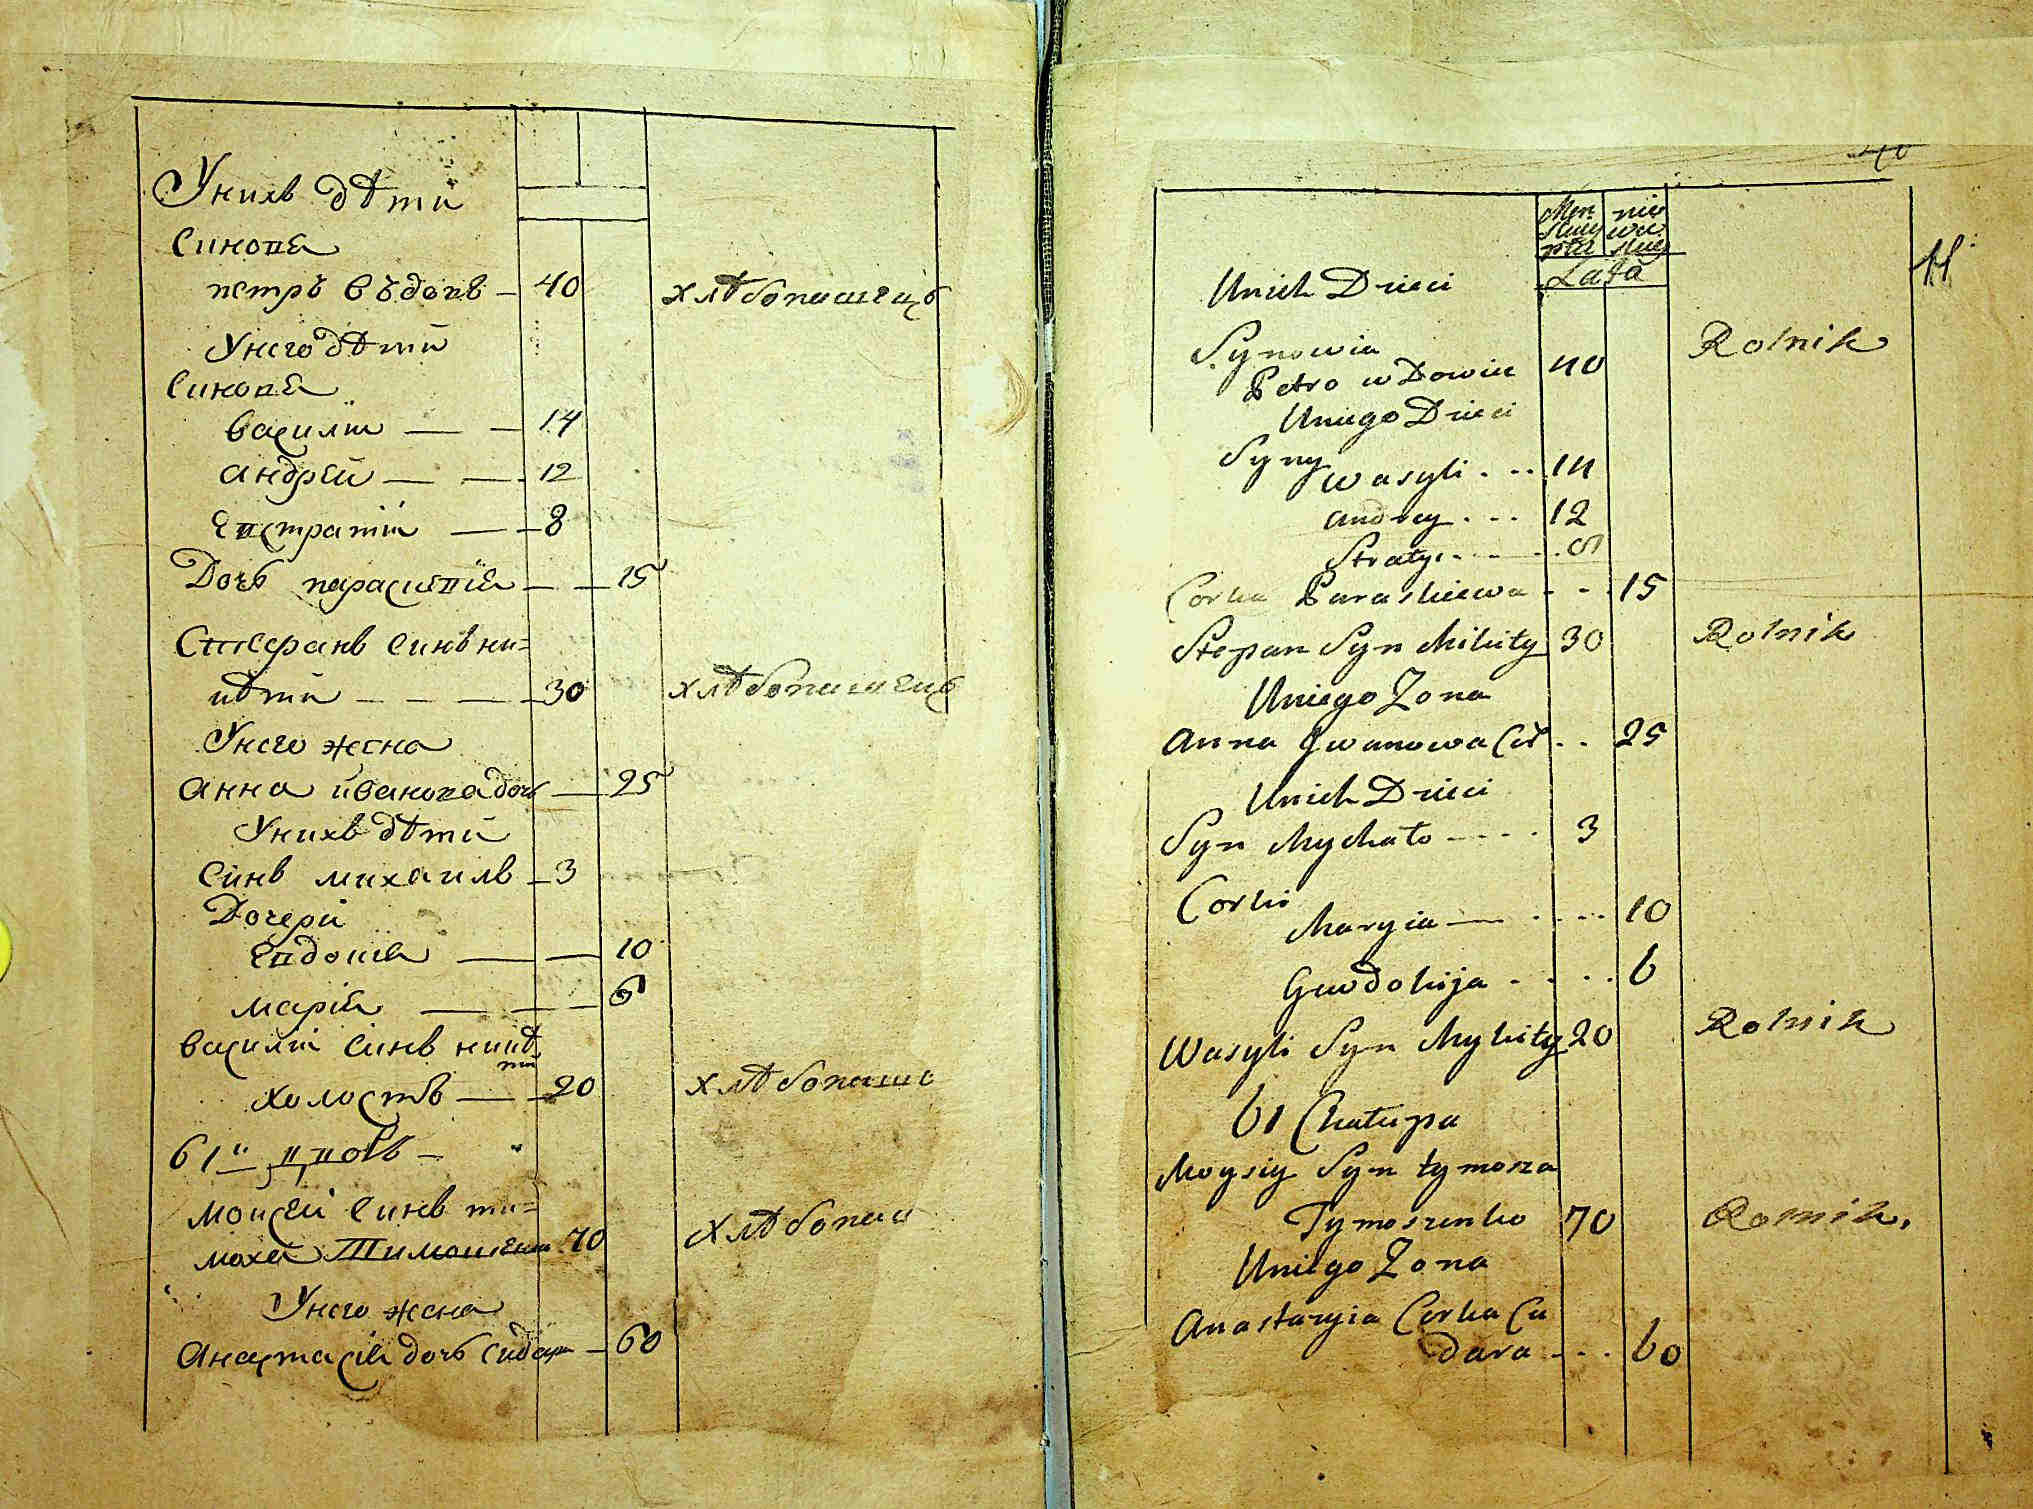 Унихъ дѣти
Синове
петръ въдовъ — 40 хлѣбопашецъ
Унего дѣти
Синове
Василій — — 14
Андрей — — 12
Евстратій — — 8
Дочь параскевія — — 15
Стефанъ Синъ ни=
кѣти — — — 30 хлѣбопашецъ
Унего жена
Анна иванова дочь — 25
Унихъ дѣти
Синъ михаилъ — 3
Дочери
Евдокія — — 10
марія — — — 6
Василій Синъ никѣ
ти
холостъ — — 20 хлѣбопаше
61
Моисей Синъ ти=
моха Тимошенко 70 хлѣбопаш
Унего жена
Анастасія дочь Сидора — 60
Męs nie
Lata
Unich Dzieci
Synowia
Petro wDowiec 40 Rolnik
Uniego Dzieci
Syny
Wasyli . . . 14
Andrey . . . 12
Straty . . . . 8
Corka Paraskiewa . . . 15
Stepan Syn Mikity 30 Rolnik
Uniego Zona
Anna Jwanowa Cor . . 25
Unich Dzieci
Syn Mychało . . . . 3
Corki
Maryia — . . . . 10
Gwdokija . . . . 6
Wasyli Syn Mykity 20 Rolnik
61 Chałupa
Moysiy Syn tymosza
Tymoszenko 70 Rolnik.
Uniego Zona
Anastazyia Corka Cu
dara . . . 60